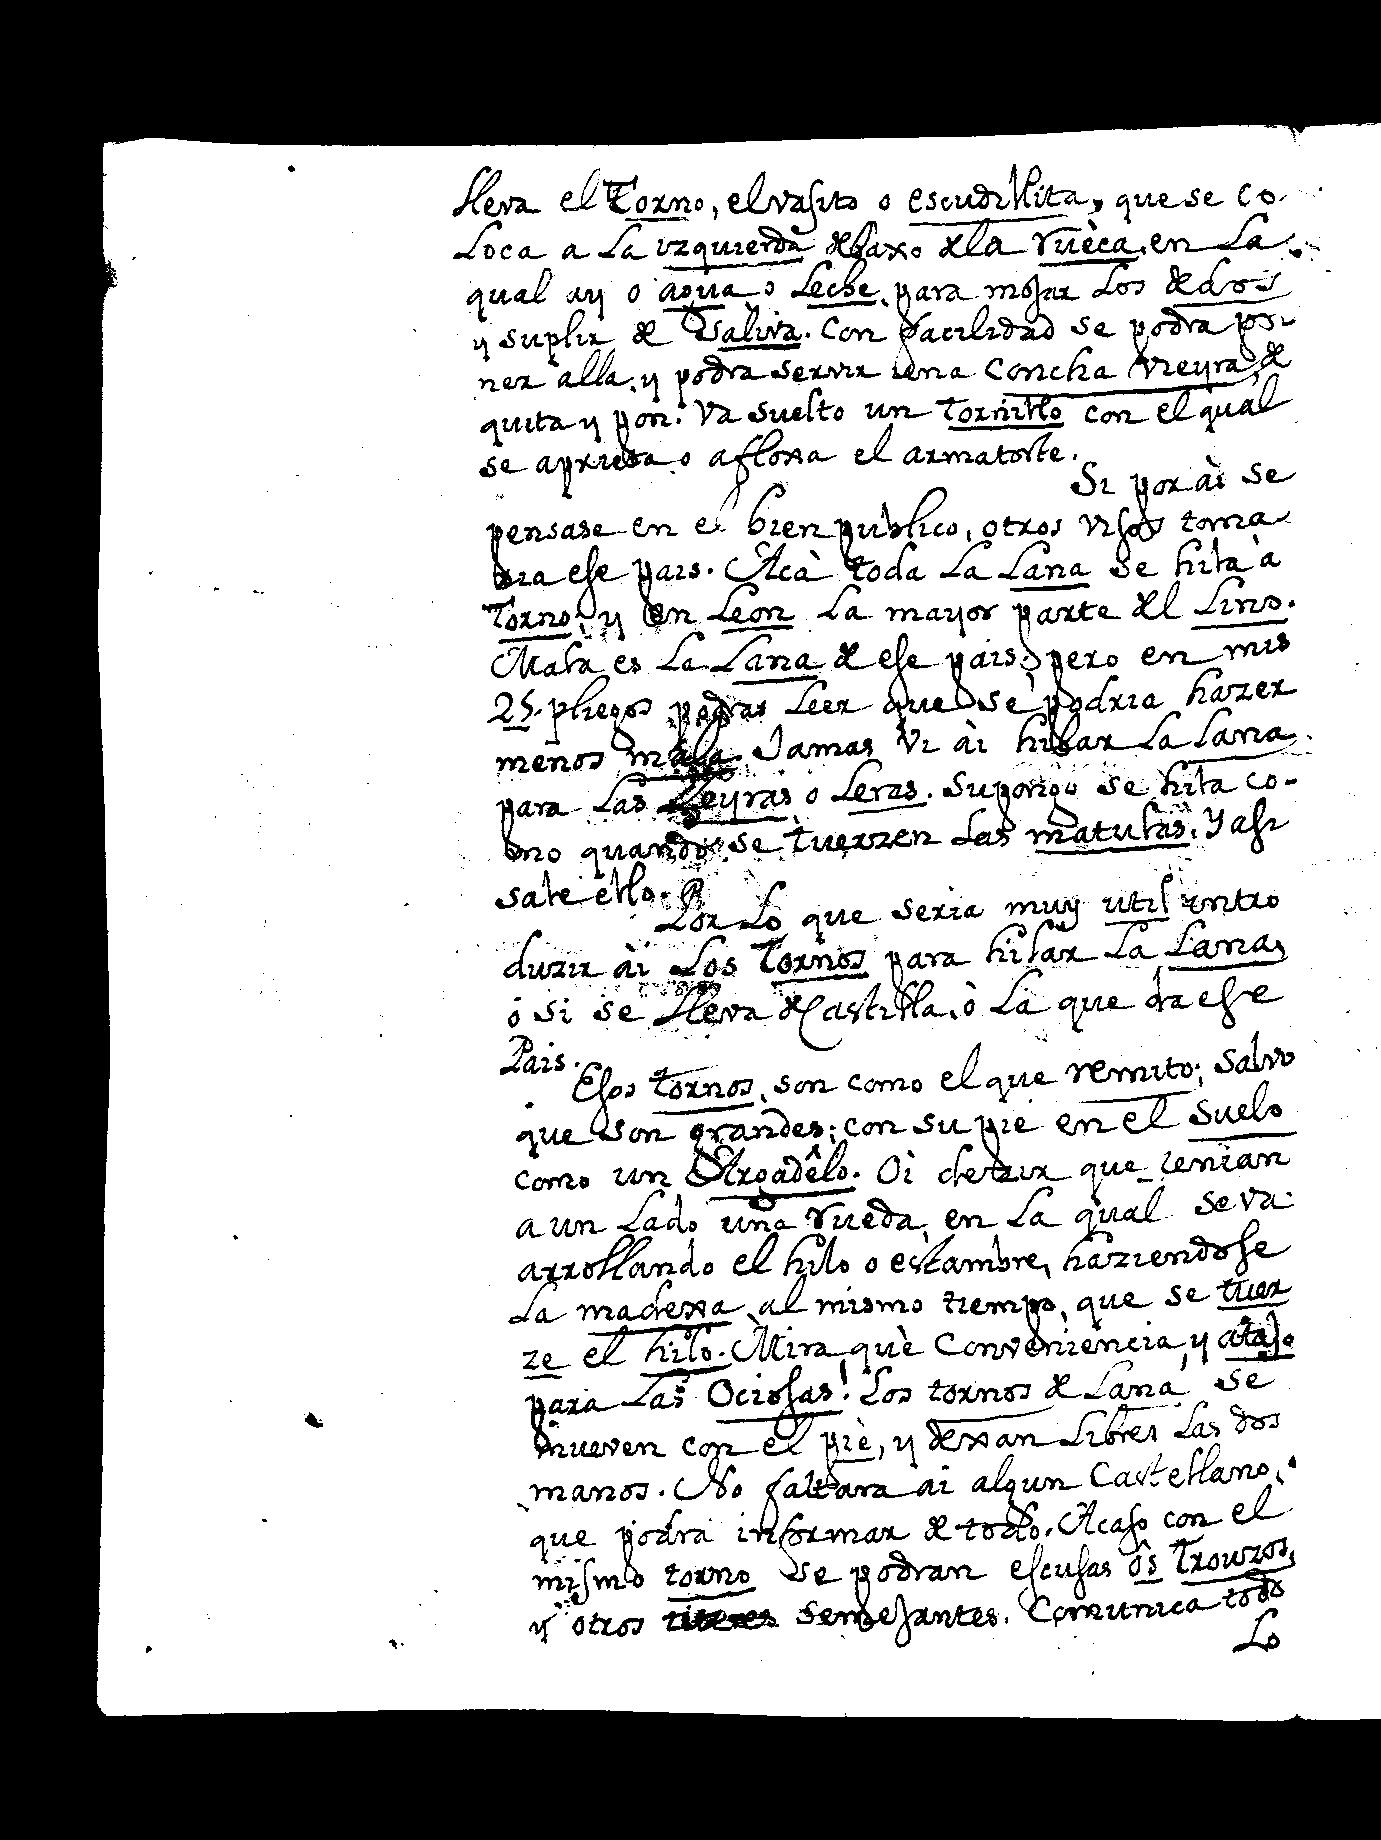 lleva el Torno, el vasito o escudillita, que se co-
loca a la izquierda debaxo de la ruèca, en la
qual ay o agua o leche, para mojar los dedos
y suplir de saliva. Con facilidad se podra po-
ner alla, y podra servir una Concha vieyra, de
quita y pon. Va suelto un tornillo con el qual
se aprieta o afloxa el armatoste.
Si por ài se
pensase en el bien publico, otros visos toma
ria ese pais. Acà toda la Lana se hila à
Torno; y en Leon la mayor parte del Lino.
Mala es la Lana de ese pais; pero en mis
25. pliegos podras leer que se podria hazer
menos mala. Jamas vi ài hilar la Lana
para las Leyras o Leras. Supongo se hila co-
mo quando se tuerzen las matulas. Y asi
sale ello.
Por lo que seria muy util intro
duzir ài los Tornos para hilar la Lana,
ó si se lleva de Castilla, ò la que da ese
Pais.
Esos tornos, son como el que remito; salvo
que son grandes; con su pie en el suelo
como un Argadêlo. Oì dezir que tenian
a un lado una rueda, en la qual se va
arrollando el hilo o estambre, haziendose
la madexa, al mismo tiempo, que se tuer
ze el hilo. Mira, què conveniencia, y atajo
para las Ociosas! Los tornos de Lana se
mueven con el piè, y dexan libres las dos
manos. No faltara ai algun Castellano,
que podra informar de todo. Acaso con el
mismo torno se podran escusas ôs Trouzos,
y otros semejantes. Comunica todo
Lo